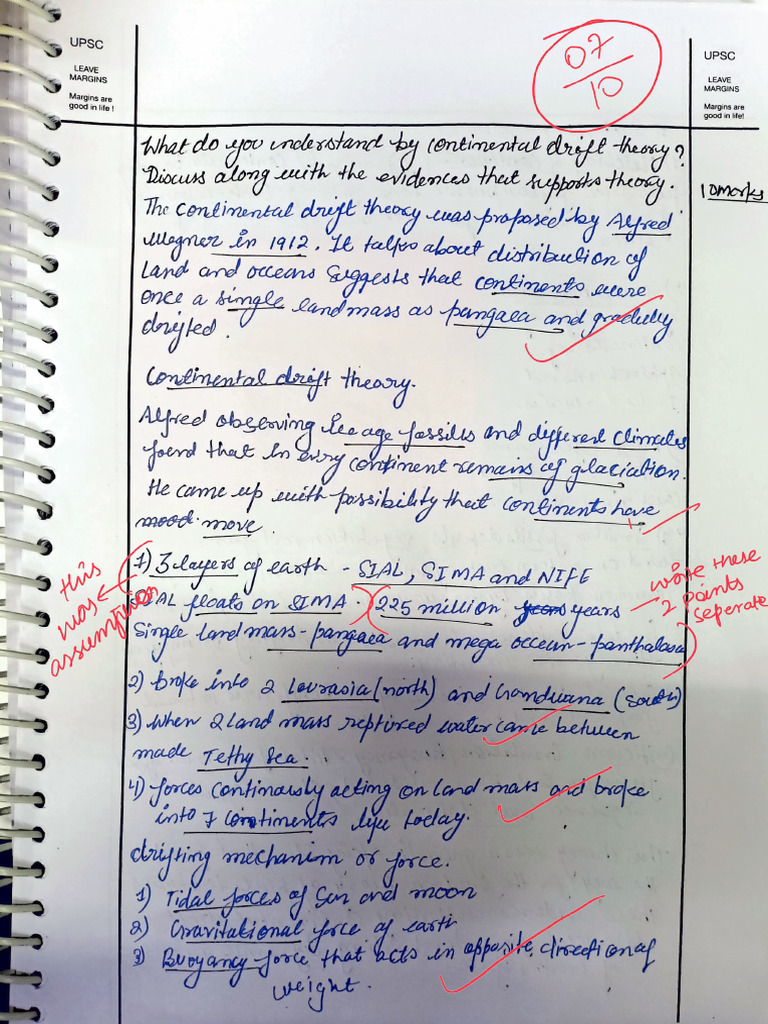 UPSC
LEAVE
MARGINS
Margins are
good in life !
07/10
UPSC
LEAVE
MARGINS
Margins are
good in life!
What do you understand by continental drift theory?
Discuss along with the evidences that supports theory.
10marks
The continental drift theory was proposed by Alfred
Wegner in 1912. It talks about distribution of
land and occeans suggests that continents were
once a single landmass as pangaea and gradully
drifted.
Continental drift theory.
Alfred observing Ice age fossills and different climates
found that in every continent remains of glaciation.
He came up with possibility that continents have
mood move
1) 3 layers of earth - SIAL, SIMA and NIFE
SIAL floats on SIMA. 225 million years years
Single land mass - pangaea and mega occean - panthalasa
this
was
assumption
wrote these
2 points
seperate
2) broke into 2 Laurasia (north) and Gondwana (south)
3) When 2 land mass reptired water came between
made Tethy sea.
4) forces continously acting on land mass and broke
into 7 continents like today.
drifting mechanism or force.
1) Tidal forces of Sun and moon
2) Gravitational force of earth
3) Buoyancy force that acts in opposite direction of
weight.